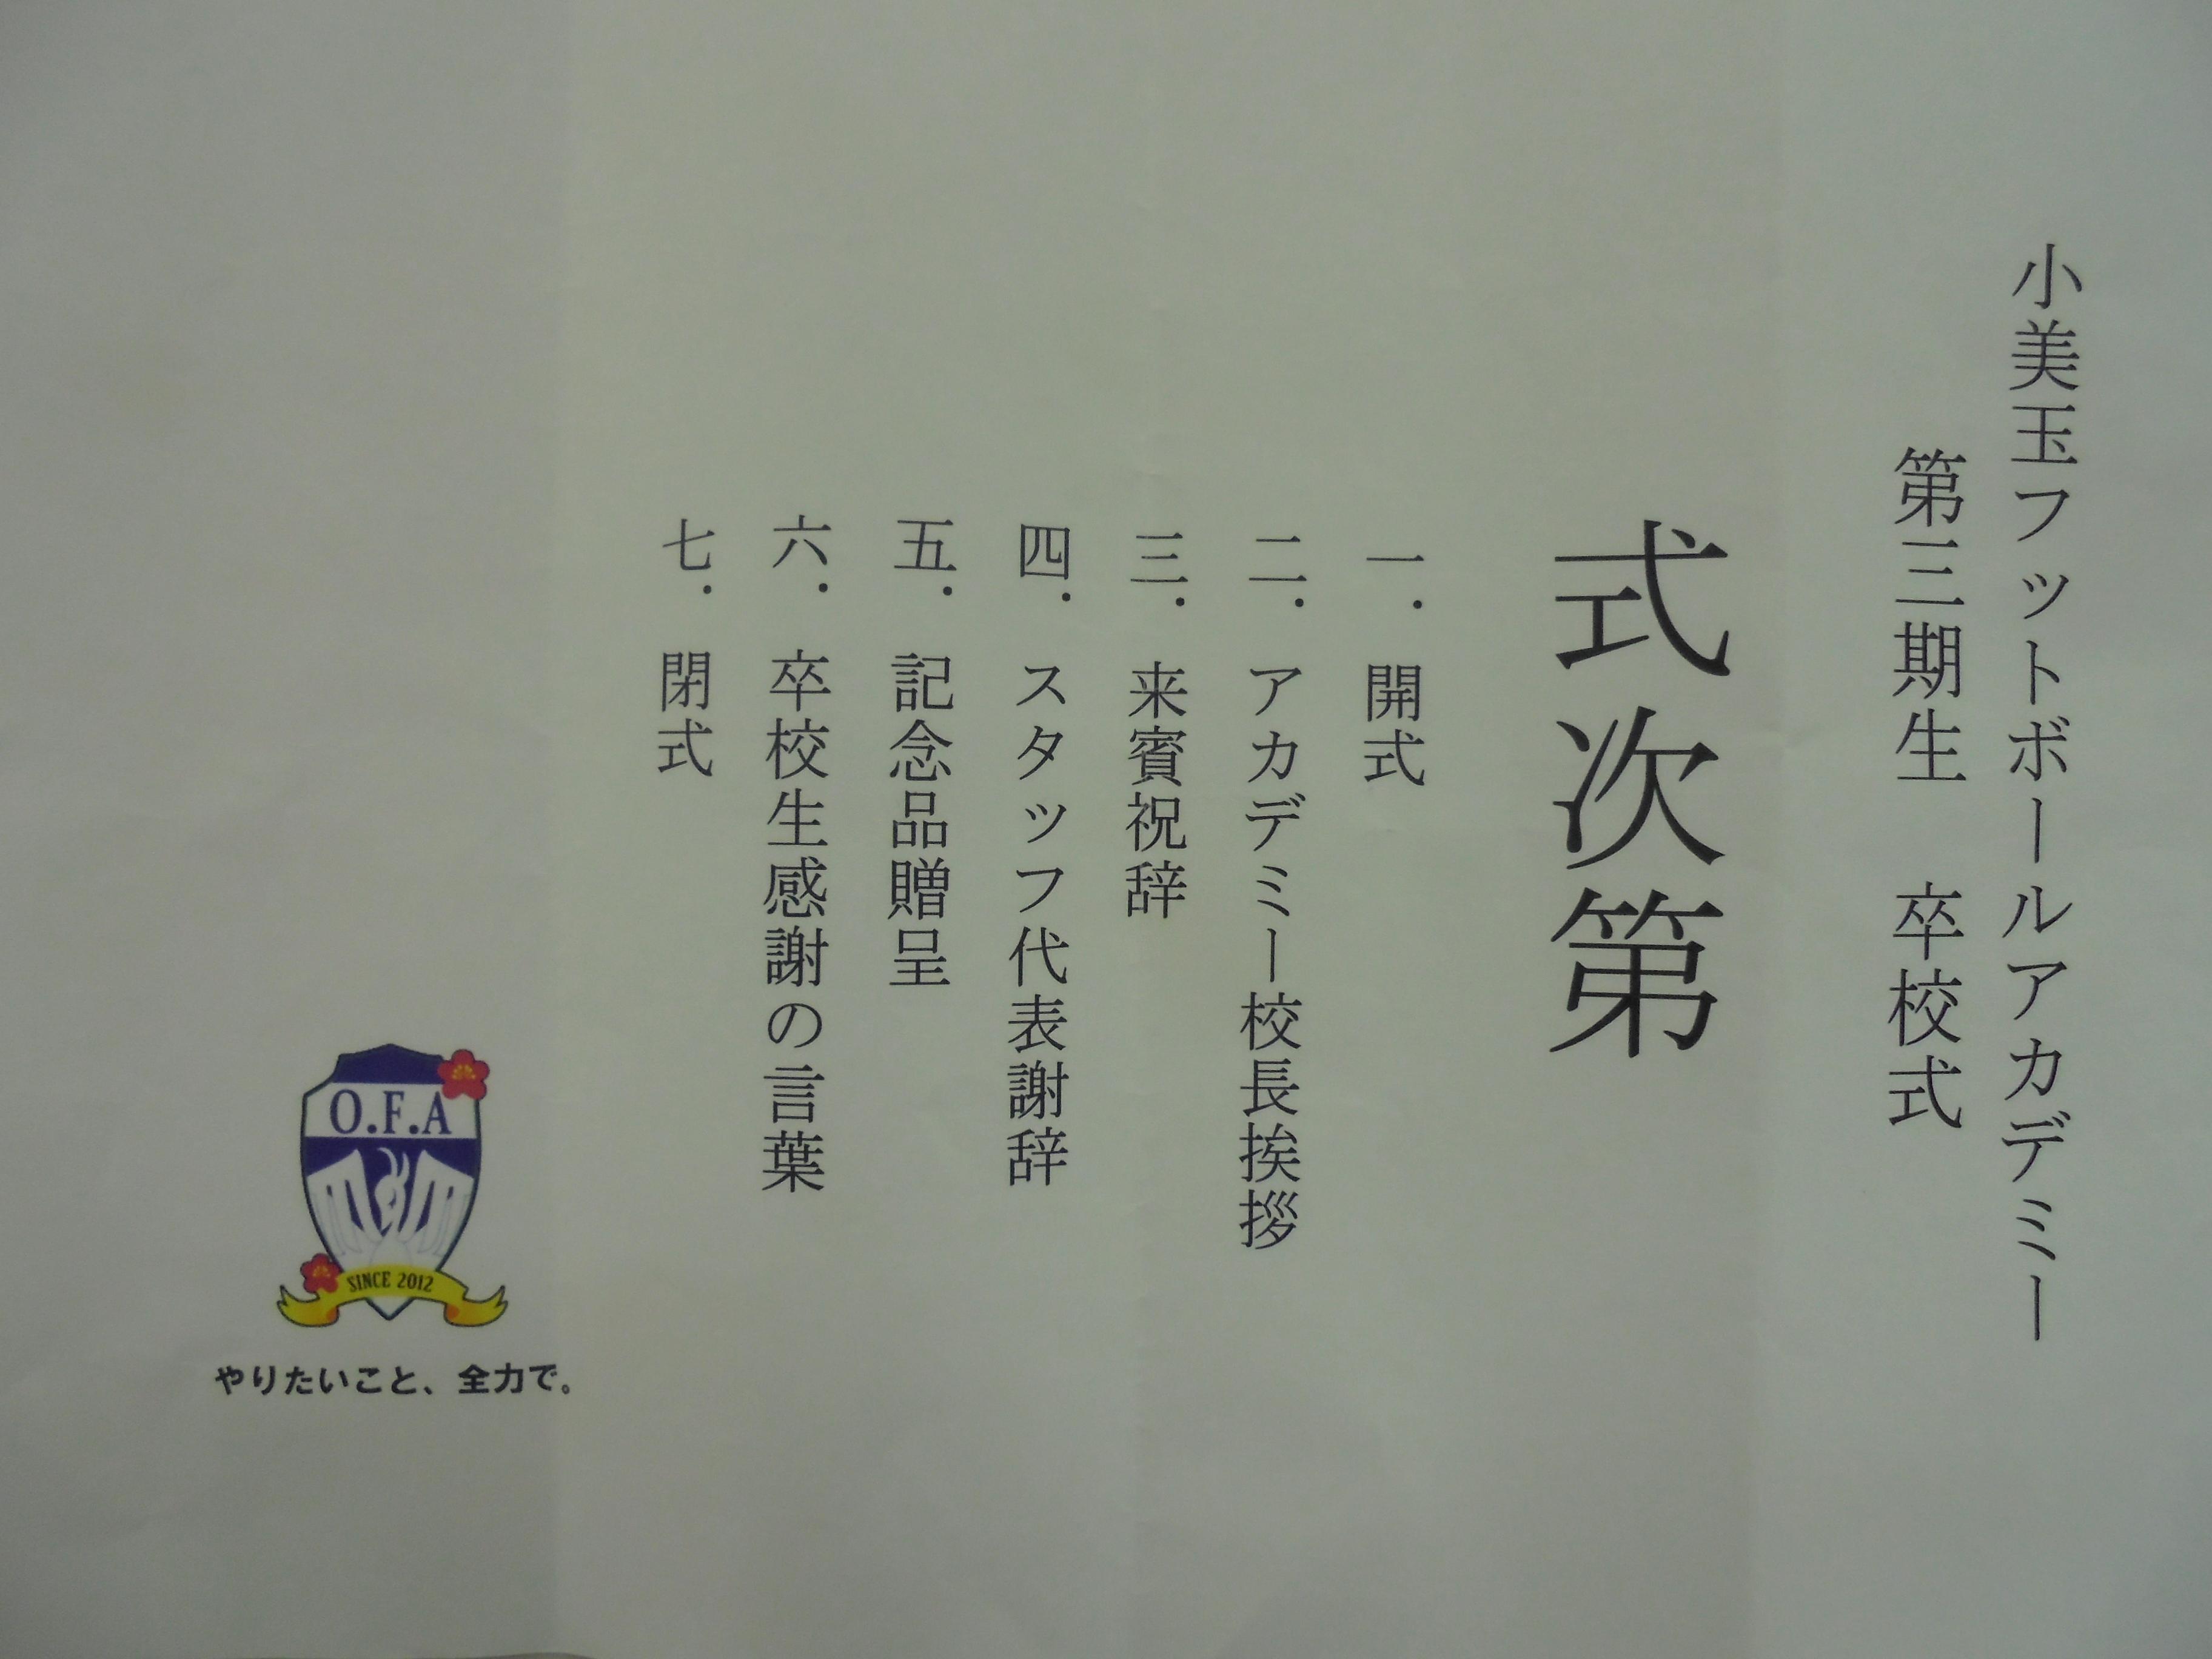 小美玉フットボールアカデミー
第三期生　卒校式
式次第
一．開式
二．アカデミー校長挨拶
三．来賓祝辞
四．スタッフ代表謝辞
五．記念品贈呈
六．卒校生感謝の言葉
七．閉式
O.F.A
SINCE 2012
やりたいこと、全力で。